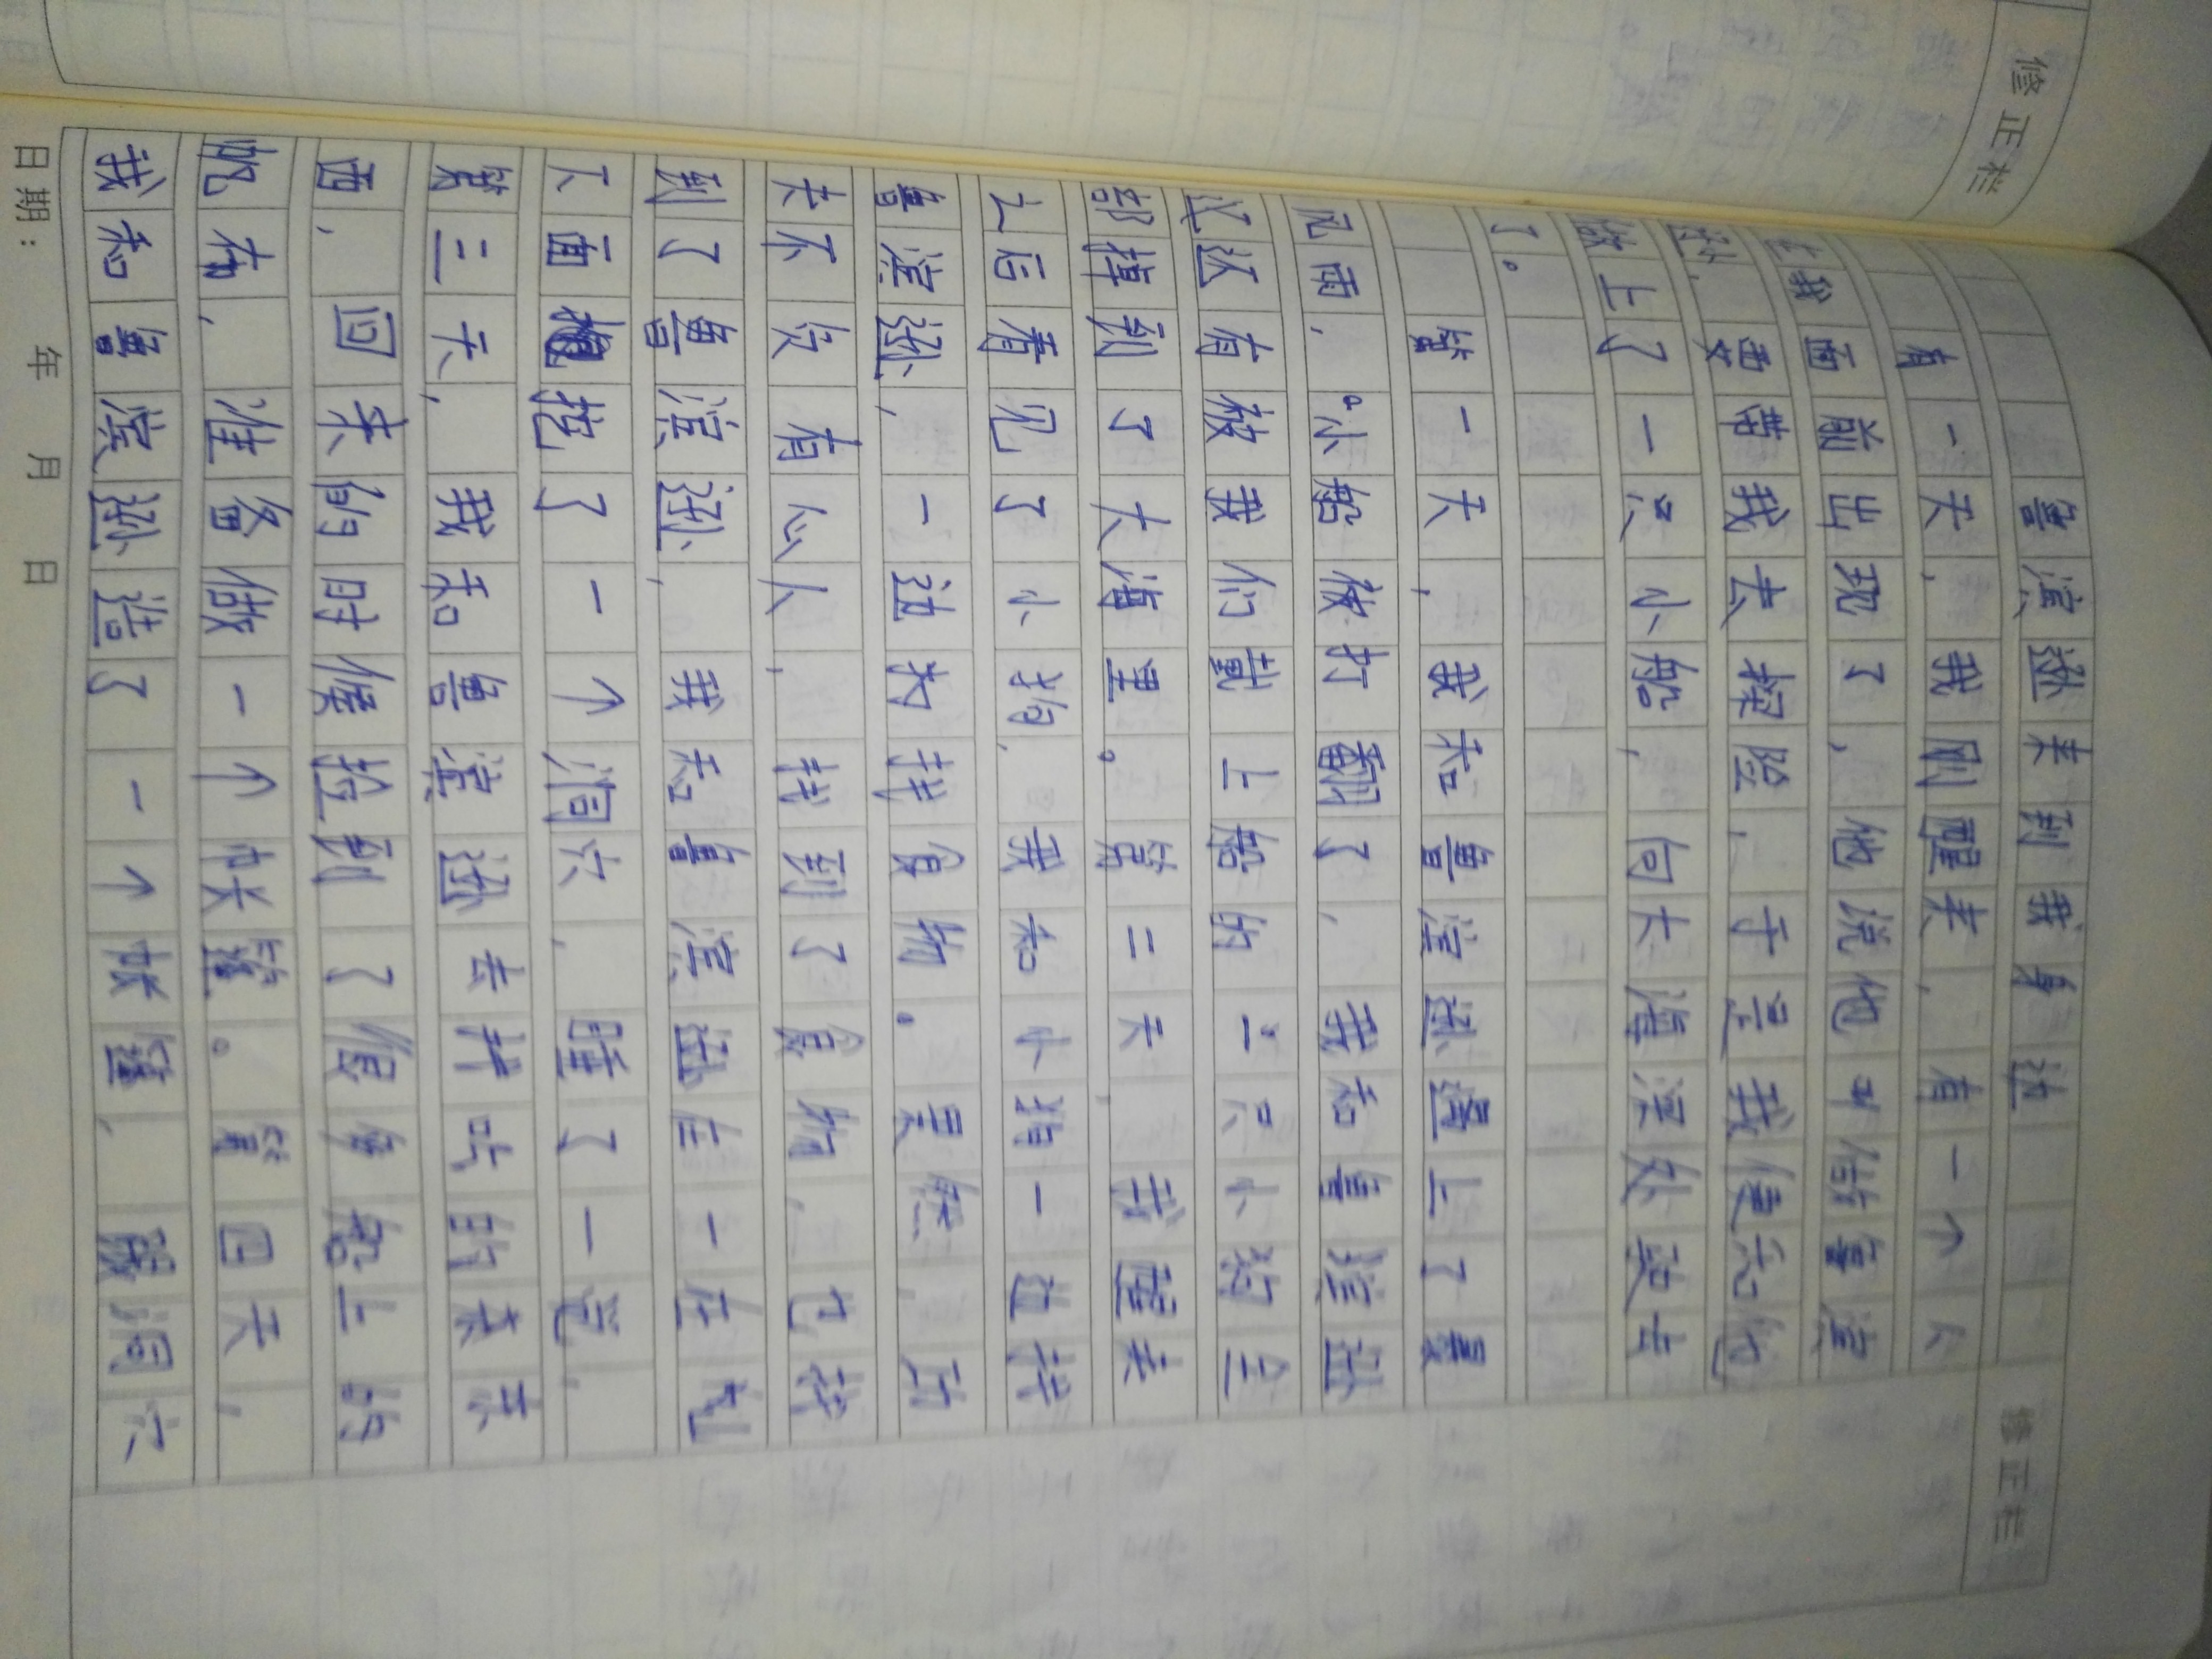 修正栏
修正栏
鲁滨逊来到我身边
有一天，我刚醒来，有一个人
在我面前出现了，他说他叫做鲁滨
逊，要带我去探险，于是我便和他
做上了一只小船，向大海深处驶去
了。
第一天，我和鲁滨逊遇上了暴
风雨，小船被打翻了，我和鲁滨逊
以及有被我们载上船的一只小狗全
部掉到了大海里。第二天，我醒来
之后看见了小狗，我和小狗一边找
鲁滨逊，一边为找食物。果然，功
夫不负有心人，找到了食物，也找
到了鲁滨逊，我和鲁滨逊在一座
下面挖了一个洞穴，睡了一觉，
第三天，我和鲁滨逊去找吃的来东
西，回来的时候捡到了很多船上的
帆布，准备做一个帐篷。第四天，
我和鲁滨逊造了一个帐篷，跟洞穴
日期： 年 月 日